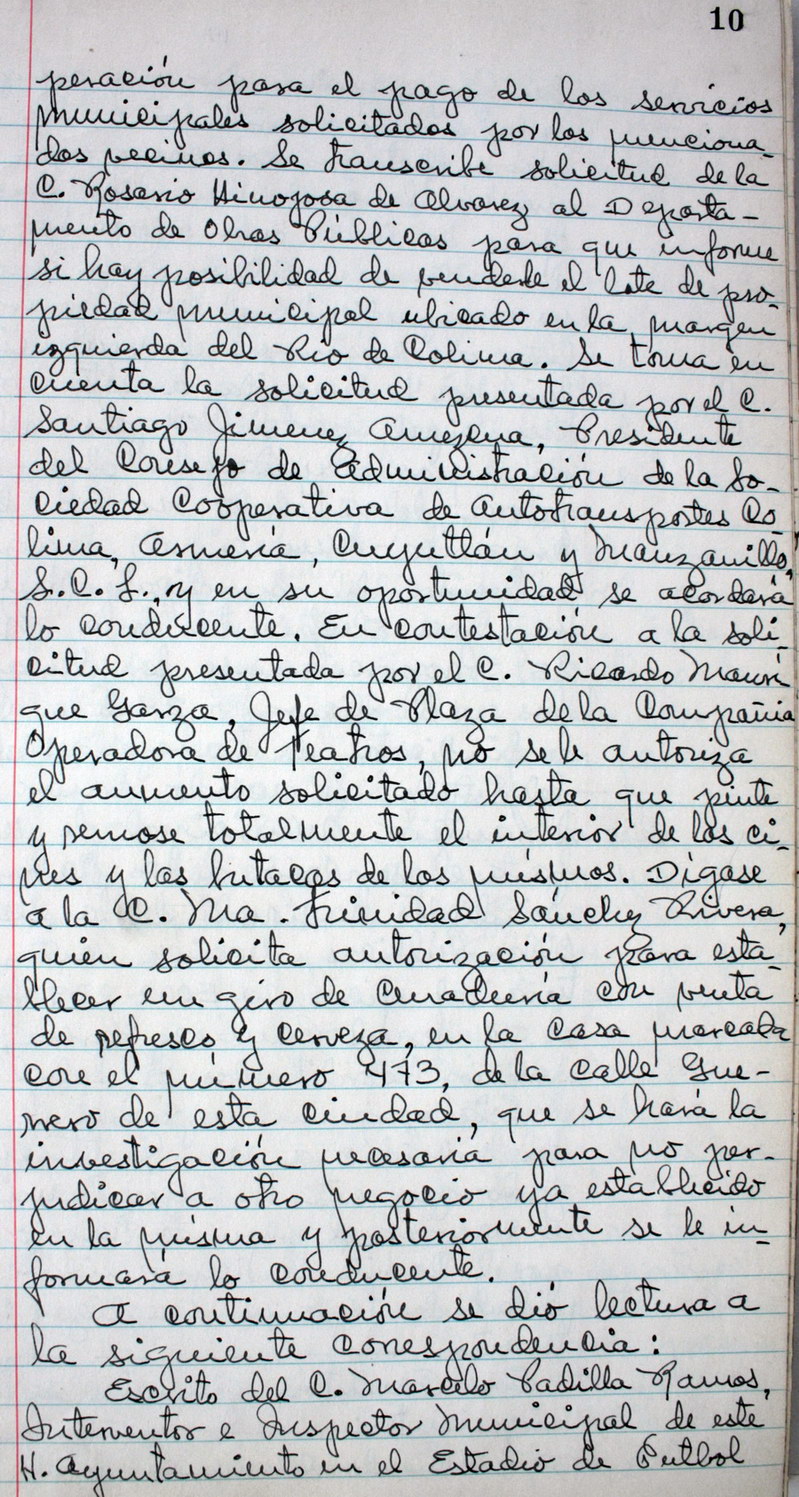 10
peración para el pago de los servicios
municipales solicitados por los menciona-
dos vecinos. Se transcribe solicitud de la
C. Rosario Hinojosa de Alvarez al Departa-
mento de Obras Públicas para que informe
si hay posibilidad de venderle el lote de pro-
piedad municipal ubicado en la margen
izquierda del Río de Colima. Se toma en
cuenta la solicitud presentada por el C.
Santiago Jimenez Amezcua, Presidente
del Consejo de Administración de la So-
ciedad Cooperativa de Autotransportes Co-
lima, Armería, Cuyutlán y Manzanillo,
S.C.L., y en su oportunidad se acordará
lo conducente. En contestación a la soli-
citud presentada por el C. Ricardo Manri
que Garza, Jefe de Plaza de la Compañia
Operadora de Teatros, no se le autoriza
el aumento solicitado hasta que pinte
y remose totalmente el interior de los ci-
nes y las butacas de los mismos. Dígase
a la C. Ma. Trinidad Sánchez Rivera,
quién solicita autorización para esta-
blecer un giro de Cenaduría con venta
de refresco y cerveza, en la casa marcada
con el número 473, de la calle Gue-
rrero de esta ciudad, que se hará la
investigación necesaria para no per-
judicar a otro negocio ya establecido
en la misma y posteriormente se le in-
formará lo conducente.
A continuación se dió lectura a
la siguiente correspondencia:
Escrito del C. Marcelo Padilla Ramos,
Interventor e Inspector Municipal de este
H. Ayuntamiento en el Estadio de Futbol